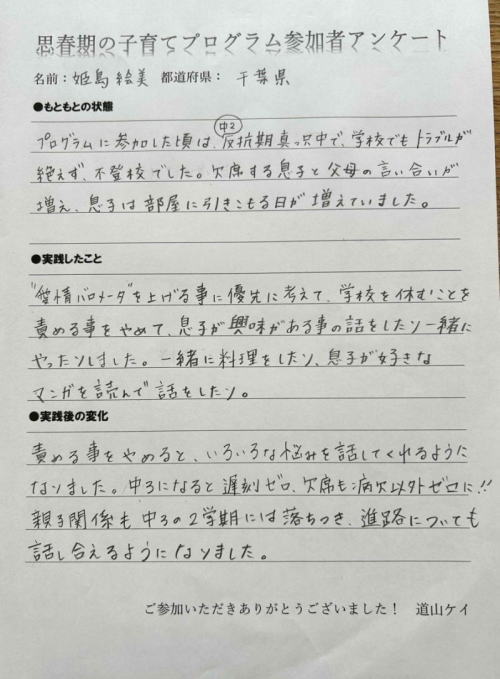 思春期の子育てプログラム参加者アンケート
名前：姫島絵美 都道府県： 千葉県
●もともとの状態
中2
プログラムに参加した頃は、反抗期真っ只中で、学校でもトラブルが
絶えず、不登校でした。欠席する息子と父母の言い合いが
増え、息子は部屋に引きこもる日が増えていました。
●実践したこと
"愛情バロメータ"を上げる事に優先に考えて、学校を休むことを
責める事をやめて、息子が興味がある事の話をしたり一緒に
やったりしました。一緒に料理をしたり、息子が好きな
マンガを読んで話をしたり。
●実践後の変化
責める事をやめると、いろいろな悩みを話してくれるように
なりました。中3になると遅刻ゼロ、欠席も病欠以外ゼロに!!
親子関係も中3の2学期には落ちつき、進路についても
話し合えるようになりました。
ご参加いただきありがとうございました！ 道山ケイ